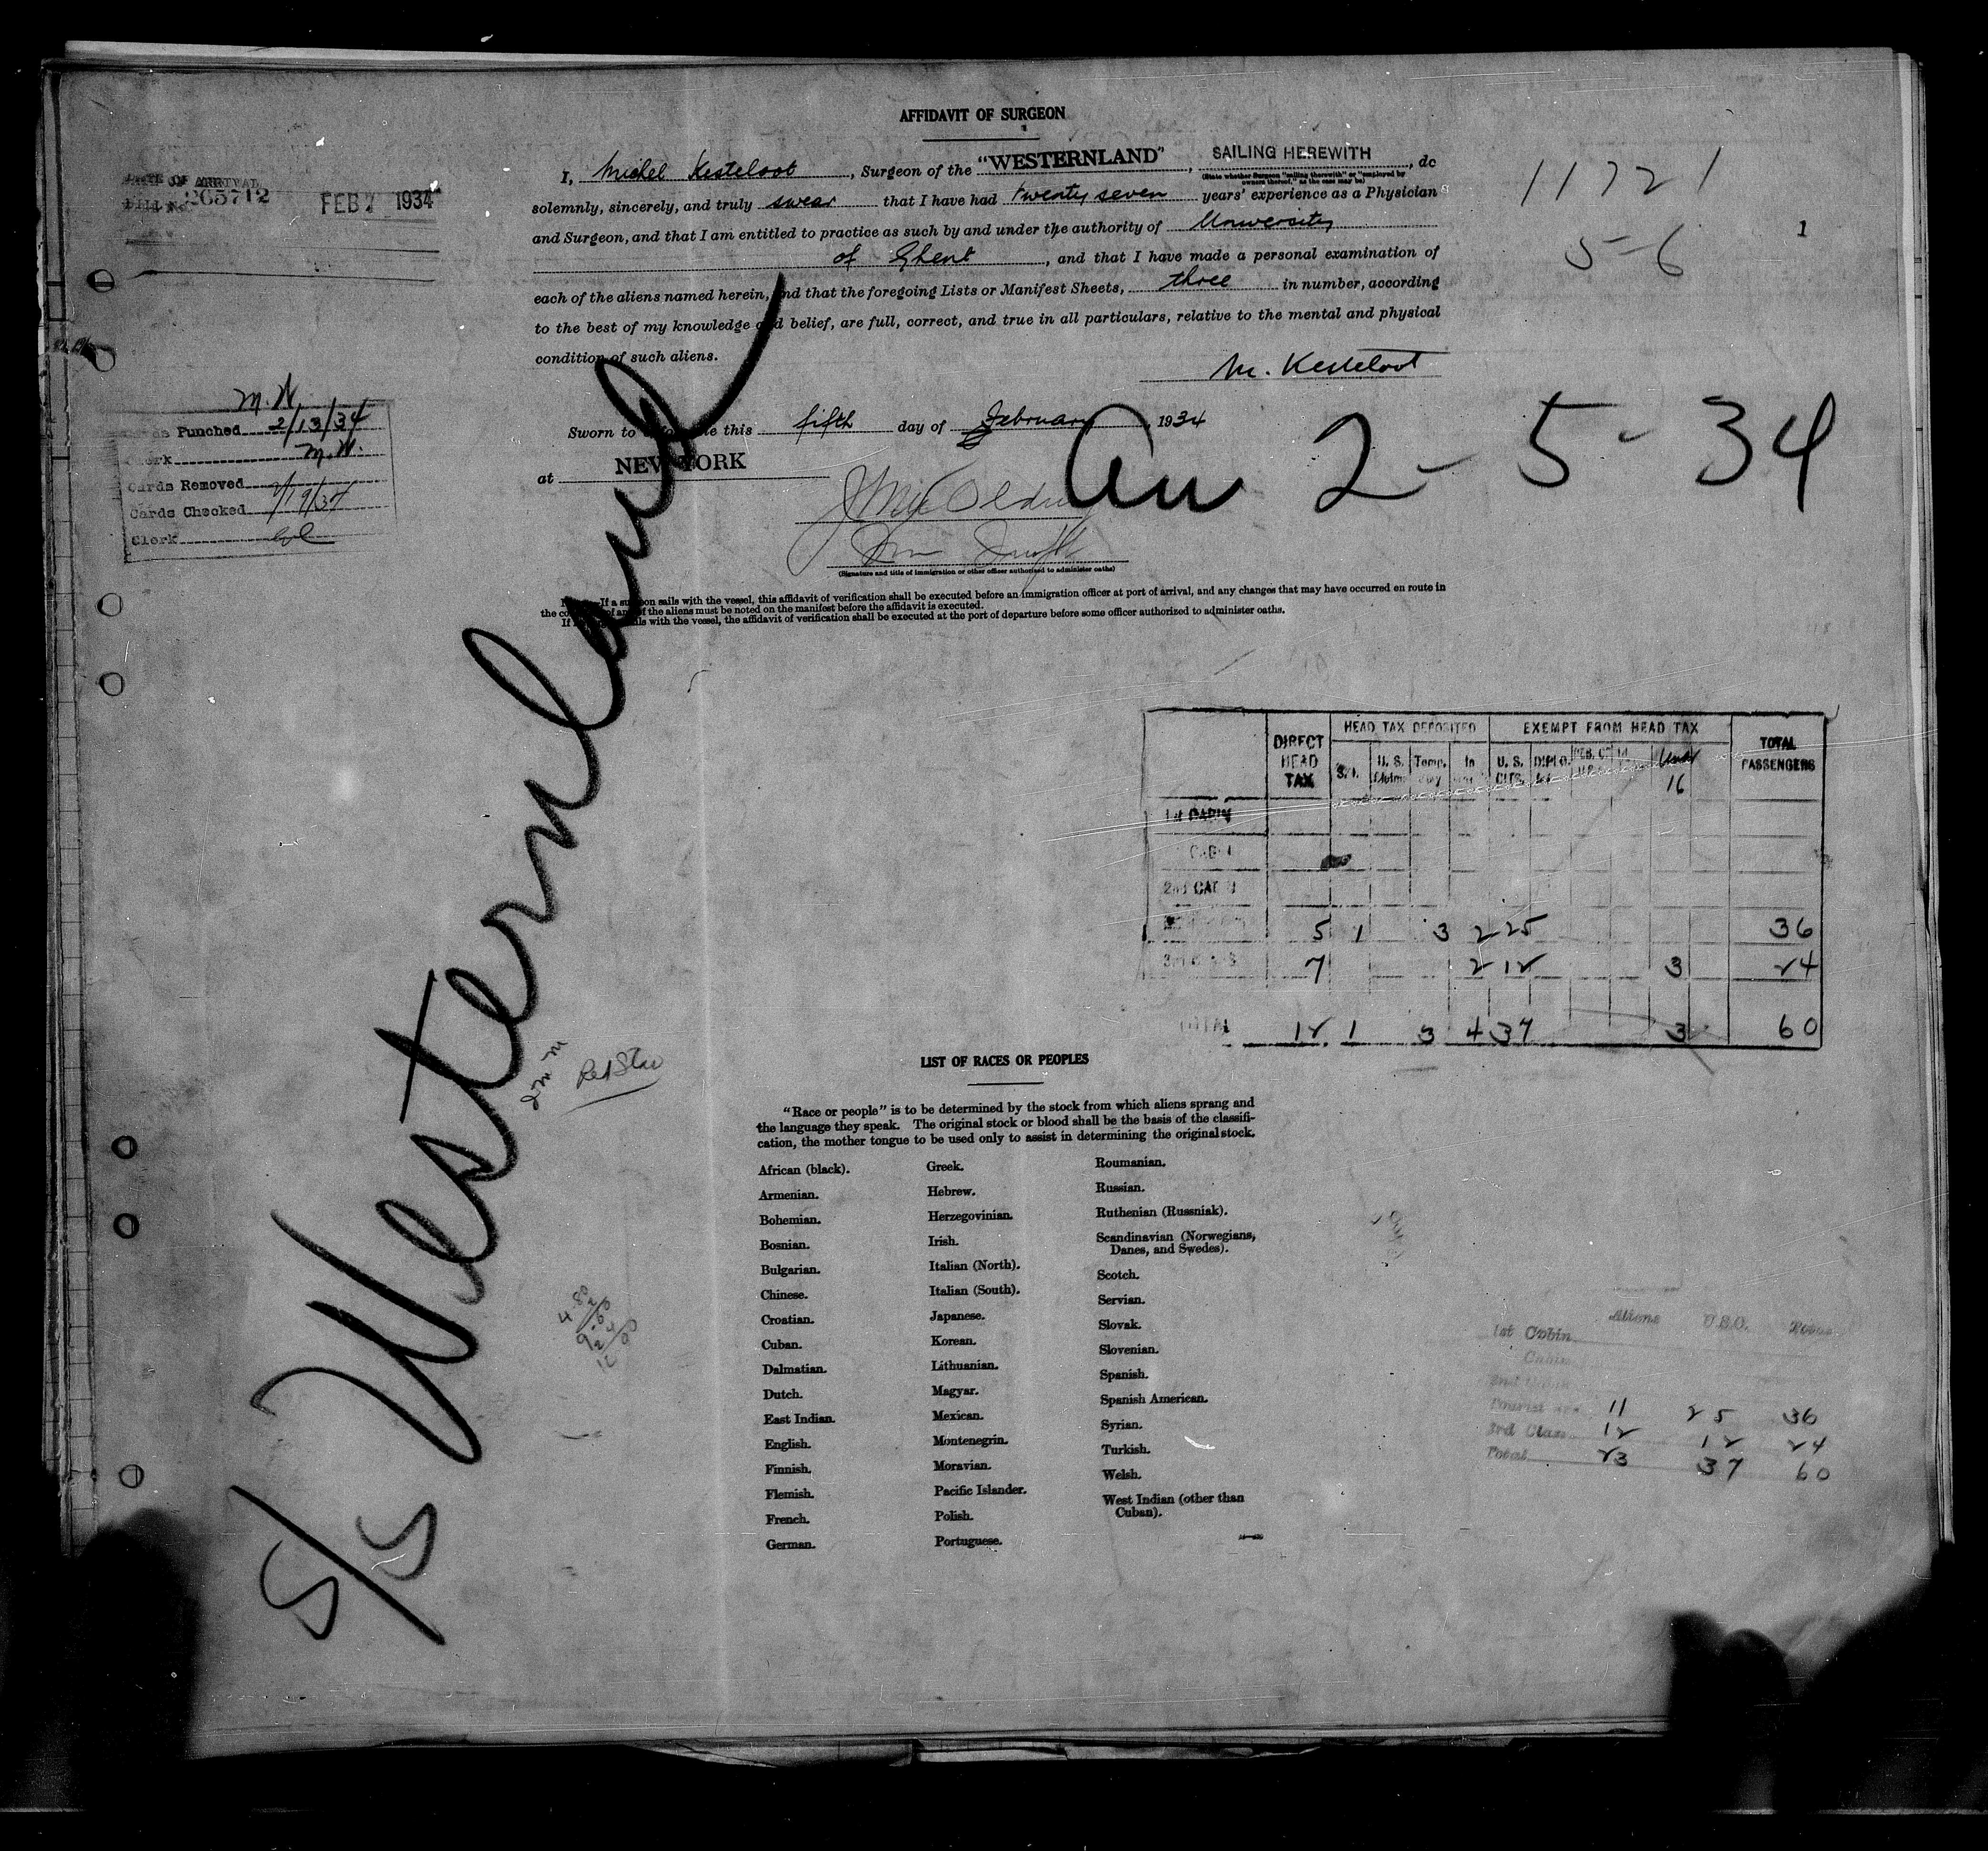 AFFIDAVIT OF SURGEON
I, Michel Kesteloot, Surgeon of the "WESTERNLAND", SAILING HEREWITH, do
(State whether Surgeon "sailing therewith" or "employed by
owners thereof," as the case may be)
solemnly, sincerely, and truly swear that I have had twenty seven years' experience as a Physician
and Surgeon, and that I am entitled to practice as such by and under the authority of University
of Ghent, and that I have made a personal examination of
each of the aliens named herein, and that the foregoing Lists or Manifest Sheets, three in number, according
to the best of my knowledge and belief, are full, correct, and true in all particulars, relative to the mental and physical
condition of such aliens.
M. Kesteloot
Sworn to before me this fifth day of February, 1934
at NEW YORK
(Signature and title of immigration or other officer authorized to administer oaths)
If a surgeon sails with the vessel, this affidavit of verification shall be executed before an immigration officer at port of arrival, and any changes that may have occurred en route in
the of any of the aliens must be noted on the manifest before the affidavit is executed.
If with the vessel, the affidavit of verification shall be executed at the port of departure before some officer authorized to administer oaths.
265712
FEB 7 1934
11721
5-6
1
M.W.
Cards Punched 2/13/34
Clerk M.W.
Cards Removed
Cards Checked 2/19/34
Clerk
2-5-34
S/S Westernland
Red Star
DIRECT HEAD TAX
HEAD TAX DEPOSITED
EXEMPT FROM HEAD TAX
TOTAL PASSENGERS
S.I. U.S. Temp. In U.S. DIPLO. Under 16
1st CABIN
2nd CABIN
5 1 3 2 25 36
7 2 12 3 24
TOTAL 12 1 3 4 37 3 60
LIST OF RACES OR PEOPLES
"Race or people" is to be determined by the stock from which aliens sprang and
the language they speak. The original stock or blood shall be the basis of the classifi-
cation, the mother tongue to be used only to assist in determining the original stock.
African (black).
Armenian.
Bohemian.
Bosnian.
Bulgarian.
Chinese.
Croatian.
Cuban.
Dalmatian.
Dutch.
East Indian.
English.
Finnish.
Flemish.
French.
German.
Greek.
Hebrew.
Herzegovinian.
Irish.
Italian (North).
Italian (South).
Japanese.
Korean.
Lithuanian.
Magyar.
Mexican.
Montenegrin.
Moravian.
Pacific Islander.
Polish.
Portuguese.
Roumanian.
Russian.
Ruthenian (Russniak).
Scandinavian (Norwegians,
Danes, and Swedes).
Scotch.
Servian.
Slovak.
Slovenian.
Spanish.
Spanish American.
Syrian.
Turkish.
Welsh.
West Indian (other than
Cuban).
Aliens U.S.C. Total
1st Cabin
Cabin
Tourist 11 25 36
3rd Class 12 12 24
Total 23 37 60